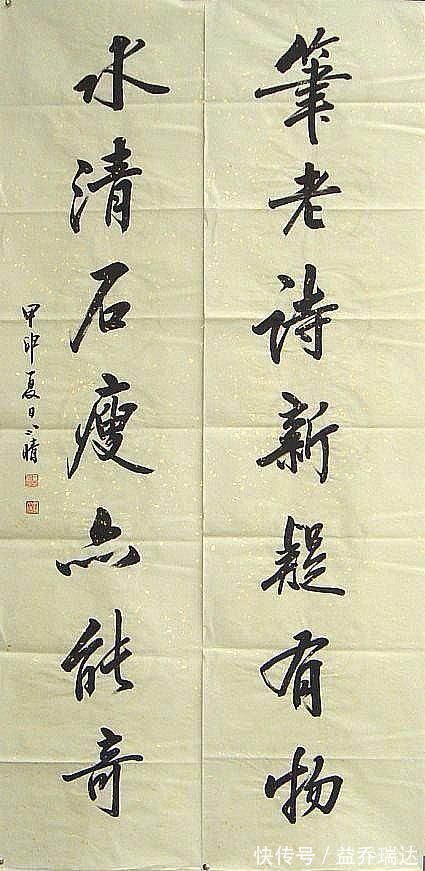 筆老詩新疑有物
水清石瘦亦能奇
甲申夏日
快传号/益乔瑞达